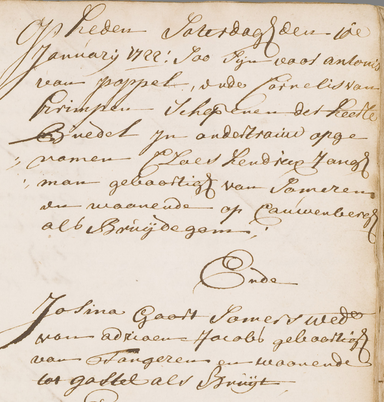 Op heden Saterdagh den 10e
January 1722: Soo Syn voor antonis
van poppel, ende Cornelis van
Krimpen Schepenen der heerle
in ondertrauw opge
nomen Claes hendrix Jong
man geboortigh van Someren
en woonende op Cauwenbergh
als Bruijdegom,
Ende
Josina Goort Somers wede
van adriaen Jacobs geboortigh
van Tongeren en woonende
tot gastel als Bruijt